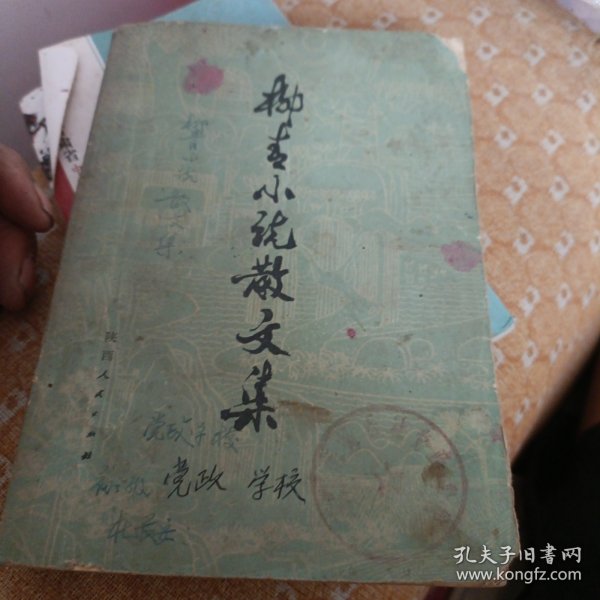 柳青小说散文集
柳青小说
散文集
陕西人民出版社
党政学校
党政 学校
孔夫子旧书网
www.kongfz.com